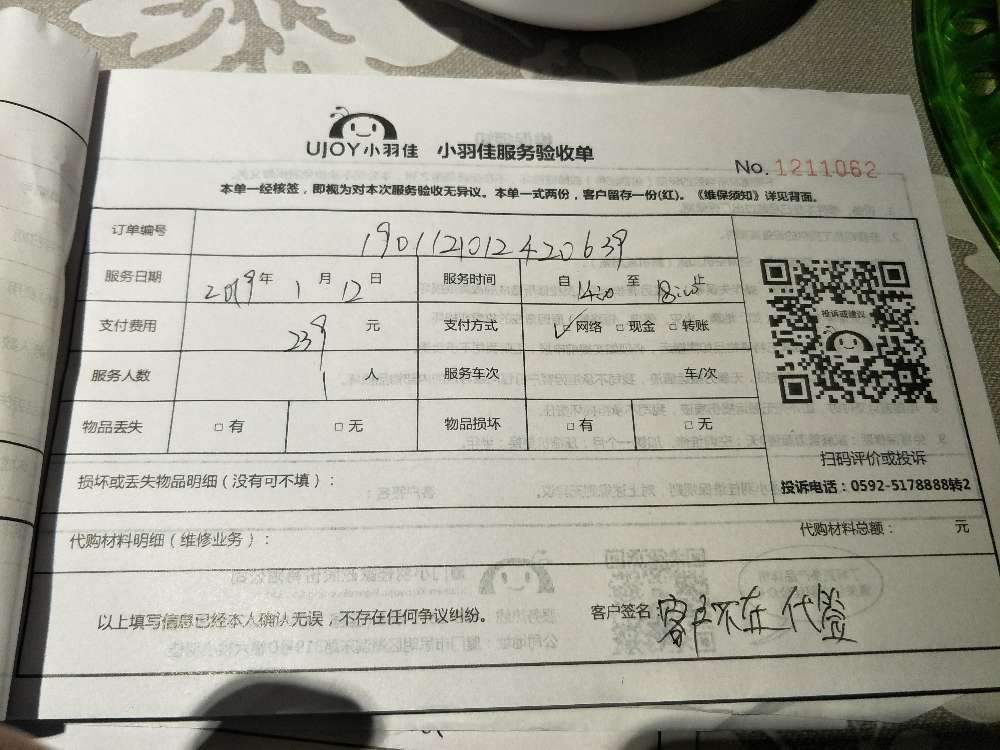 UJOY小羽佳 小羽佳服务验收单
No. 1211062
本单一经核签，即视为对本次服务验收无异议。本单一式两份，客户留存一份(红)。《维保须知》详见背面。
订单编号 1901121012420639
服务日期 2019年 1月 12日 服务时间 自 14:00 至 18:00 止
支付费用 239 元 支付方式 ☑网络 □现金 □转账
服务人数 1 人 服务车次 车/次
投诉或建议
物品丢失 □有 □无 物品损坏 □有 □无
扫码评价或投诉
损坏或丢失物品明细（没有可不填）：
投诉电话：0592-5178888转2
代购材料明细（维修业务）： 代购材料总额： 元
以上填写信息已经本人确认无误，不存在任何争议纠纷。 客户签名：客户不在 代签